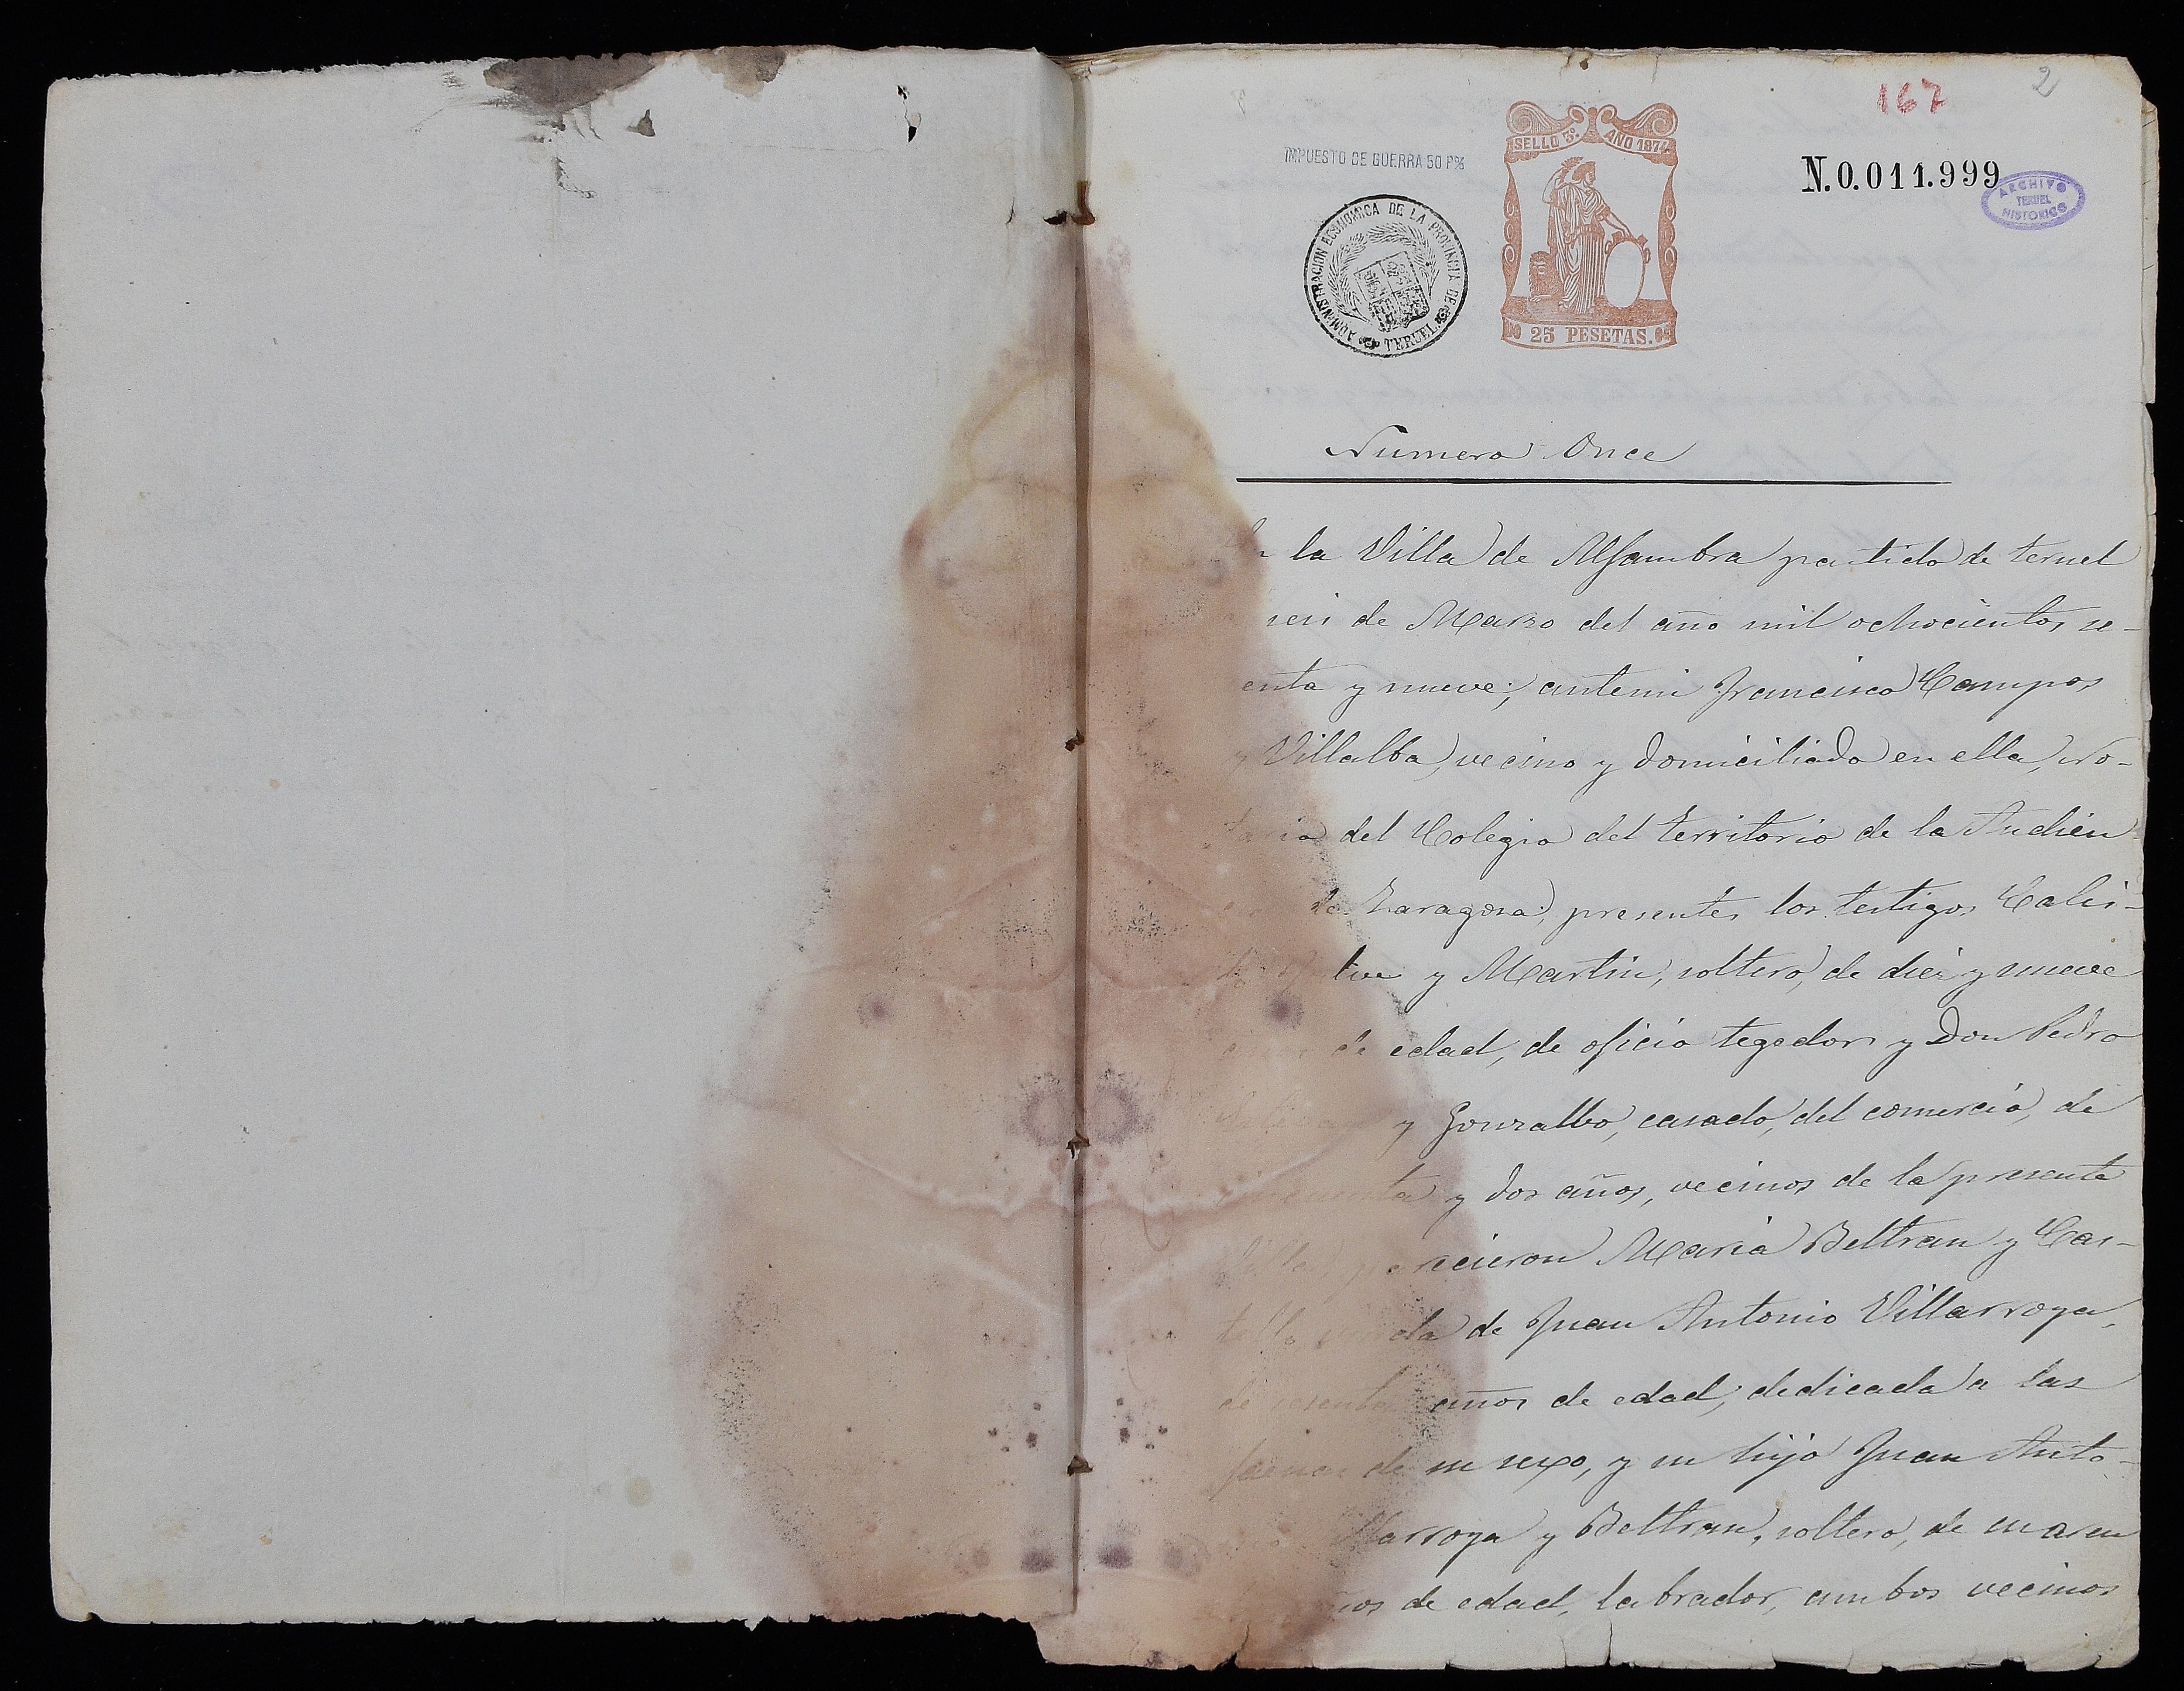 167
2
IMPUESTO DE GUERRA 50 P%
SELLO 3º. AÑO 187
N.0.011.999
ARCHIVO
TERUEL
HISTORICO
ADMINISTRACION ECONOMICA DE LA PROVINCIA DE TERUEL
25 PESETAS.
Numero Once
la Villa de Alfambra partido de teruel
seis de Marzo del año mil ochocientos se-
enta y nueve; antemi Francisco Campos
y Villalba, vecino y domiciliado en ella, No-
tario del Colegio del territorio de la Audien-
de Zaragoza, presentes los testigos Calis-
y Martin, soltero, de diez y nueve
años de edad, de oficio tegedor y Don Pedro
y Gonzalbo, casado, del comercio, de
cincuenta y dos años, vecinos de la presente
Villa, parecieron Maria Beltran y Cas-
tello viuda de Juan Antonio Villarroya,
de sesenta años de edad, dedicada a las
faenas de su sexo, y su hijo Juan Anto-
llarroya y Beltran, soltero, de
ños de edad, labrador, ambos vecinos